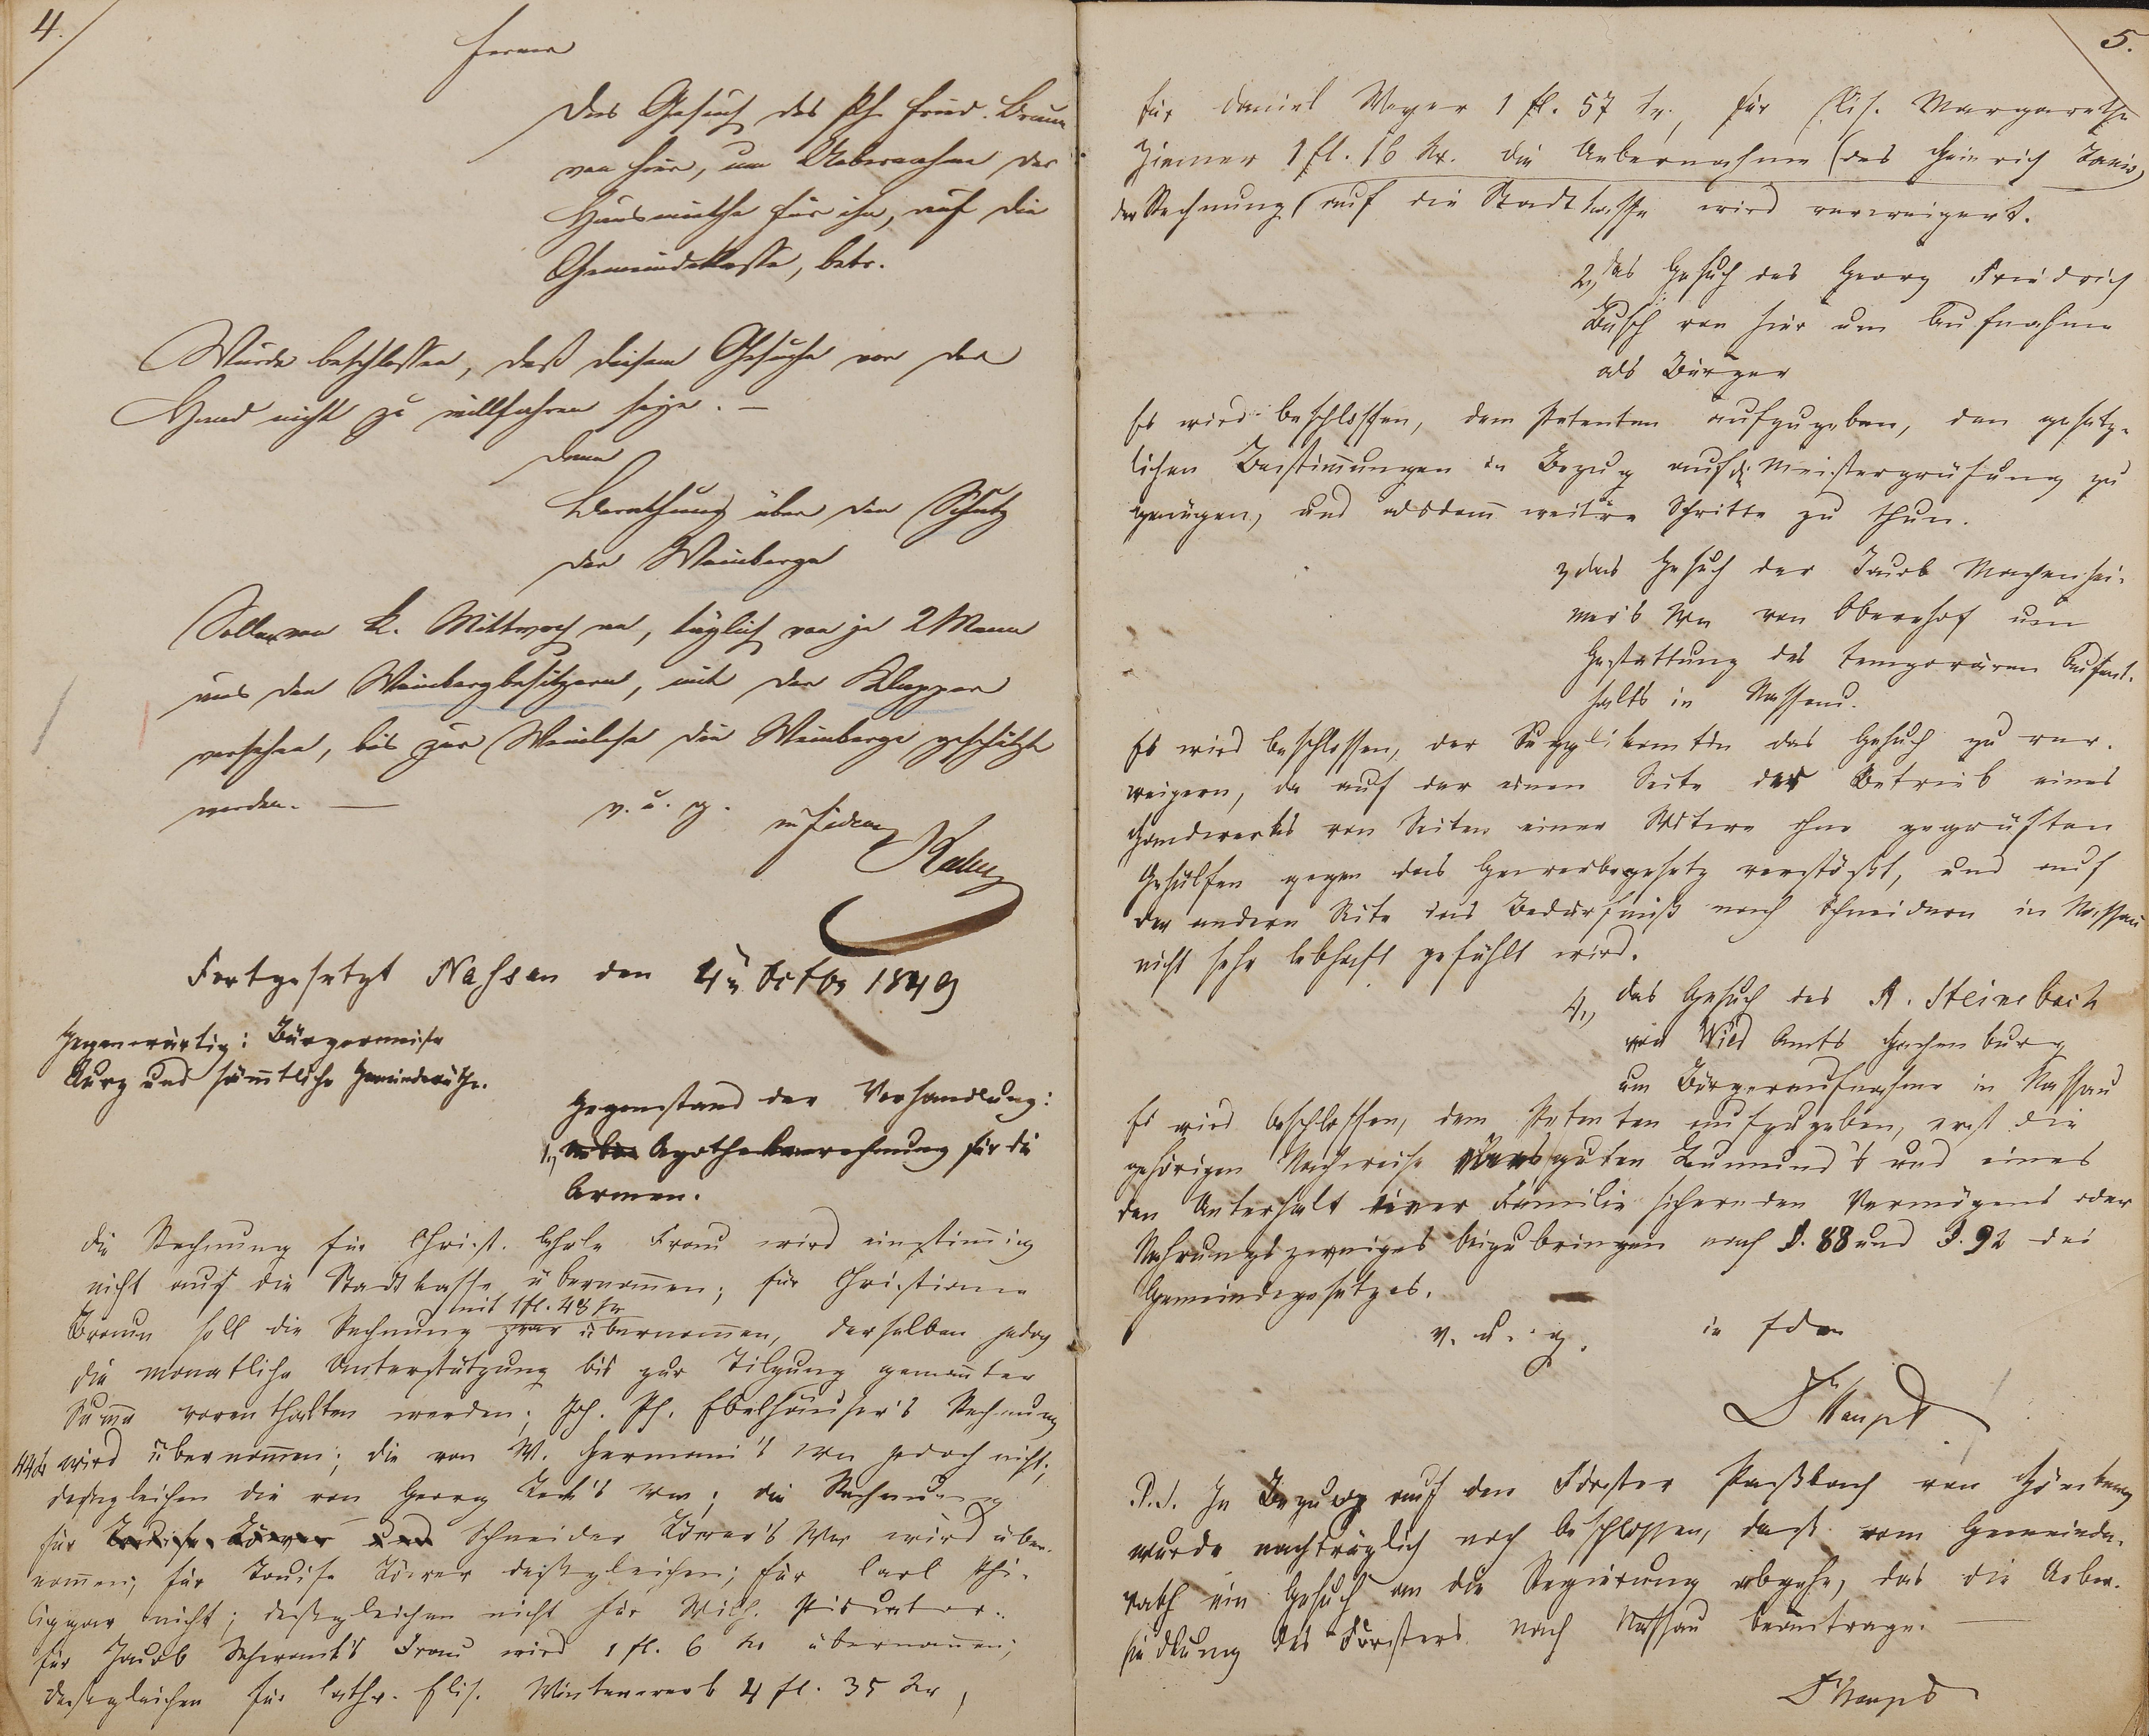 4.
Ferner
Das Gesuch des Ph. Fried. Braun
von hier, um Uebernahme der
Hausmiethe für ihn, auf die
Gemeindekasse, betr.
Wurde beschlossen, daß diesem Gesuche vor der
Hand nicht zu willfahren seye. —
Dann
Berathung über den Schutz
der Weinberge
Sollen von k. Mittwoch an, täglich von je 2 Mann
aus den Weinbergbesitzern, mit der Klapper
versehen, bis zur Weinlese die Weinberge geschützt
werden. —
v. u. g.
in fidem
Fortgesetzt Nassau den 4n Octbr 1849
Gegenwärtig: Bürgermeister
und sämtliche Gemeinderäthe.
Gegenstand der Verhandlung:
1., Apothekenrechnung für die
Armen.
Die Rechnung für Christ. Frau wird einstimig
nicht auf die Stadtkasse übernomen; für Christiane
mit 1 fl. 48 kr
Braun soll die Rechnung zwar übernomen, derselben jedoch
die monatliche Unterstützung bis zur Tilgung genanter
Suma vorenthalten werden; Joh. Ph. Ebelhäuser's Rechnung
44 kr wird übernomen; die von W. Hermani's Ww jedoch nicht;
desgleichen die von Georg Ww; die Rechnung
für Louise und Schneider Ww wird über-
nomen; für Louise desgleichen; für Carl Phi-
lippar nicht; desgleichen nicht für Wilh. Piscator.
für Jacob Schwenk's Frau wird 1 fl. 6 kr übernomen;
desgleichen für Cath. Elis. Winterwerb 4 fl. 35 kr,
5.
für Daniel Meyer 1 fl. 57 kr., für Elis. Margarethe
Ziemer 1 fl. 16 kr. Die Uebernahme (des Heinrich
der Rechnung) auf die Stadtkasse wird verweigert.
2, das Gesuch des Georg Friedrich
Busch von hier um Aufnahme
als Bürger
Es wird beschlossen, dem Petenten aufzugeben, den gesetz-
lichen Bestimungen in Bezug auf die Meisterprüfung zu
genügen, und alsdann weitere Schritte zu thun.
3 das Gesuch der Jacob Machenhei-
mer's Ww von Obernhof um
Gestattung des temporären Aufent-
halts in Nassau.
Es wird beschlossen, der Supplikantin das Gesuch zu ver-
weigern, da auf der einen Seite der Betrieb eines
Handwerks von Seiten einer Witwe ohne geprüften
Gehülfen gegen das Gewerbegesetz verstößt, und auf
der andern Seite das Bedürfniß nach Schneidern in Nassau
nicht sehr lebhaft gefühlt wird.
4., das Gesuch des A. Steinebach
von Wied Amts Hachenburg
um Bürgeraufnahme in Nassau
Es wird beschlossen, dem Petenten aufzugeben, erst die
gehörigen Nachweise guten Leumund's und eines
den Unterhalt einer Familie sichernden Vermögens oder
Nahrungszweiges beizubringen nach §. 88 und §. 92 des
Gemeindegesetzes.
v. u. g.
in fdem
P.S. In Bezug auf den Förster von
wurde nachträglich noch beschlossen, daß vom Gemeinde-
rath ein Gesuch an die Regierung abgehe, das die Ueber-
siedlung des Försters nach Nassau beantrage.